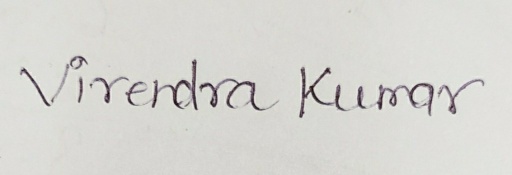 Virendra Kumar